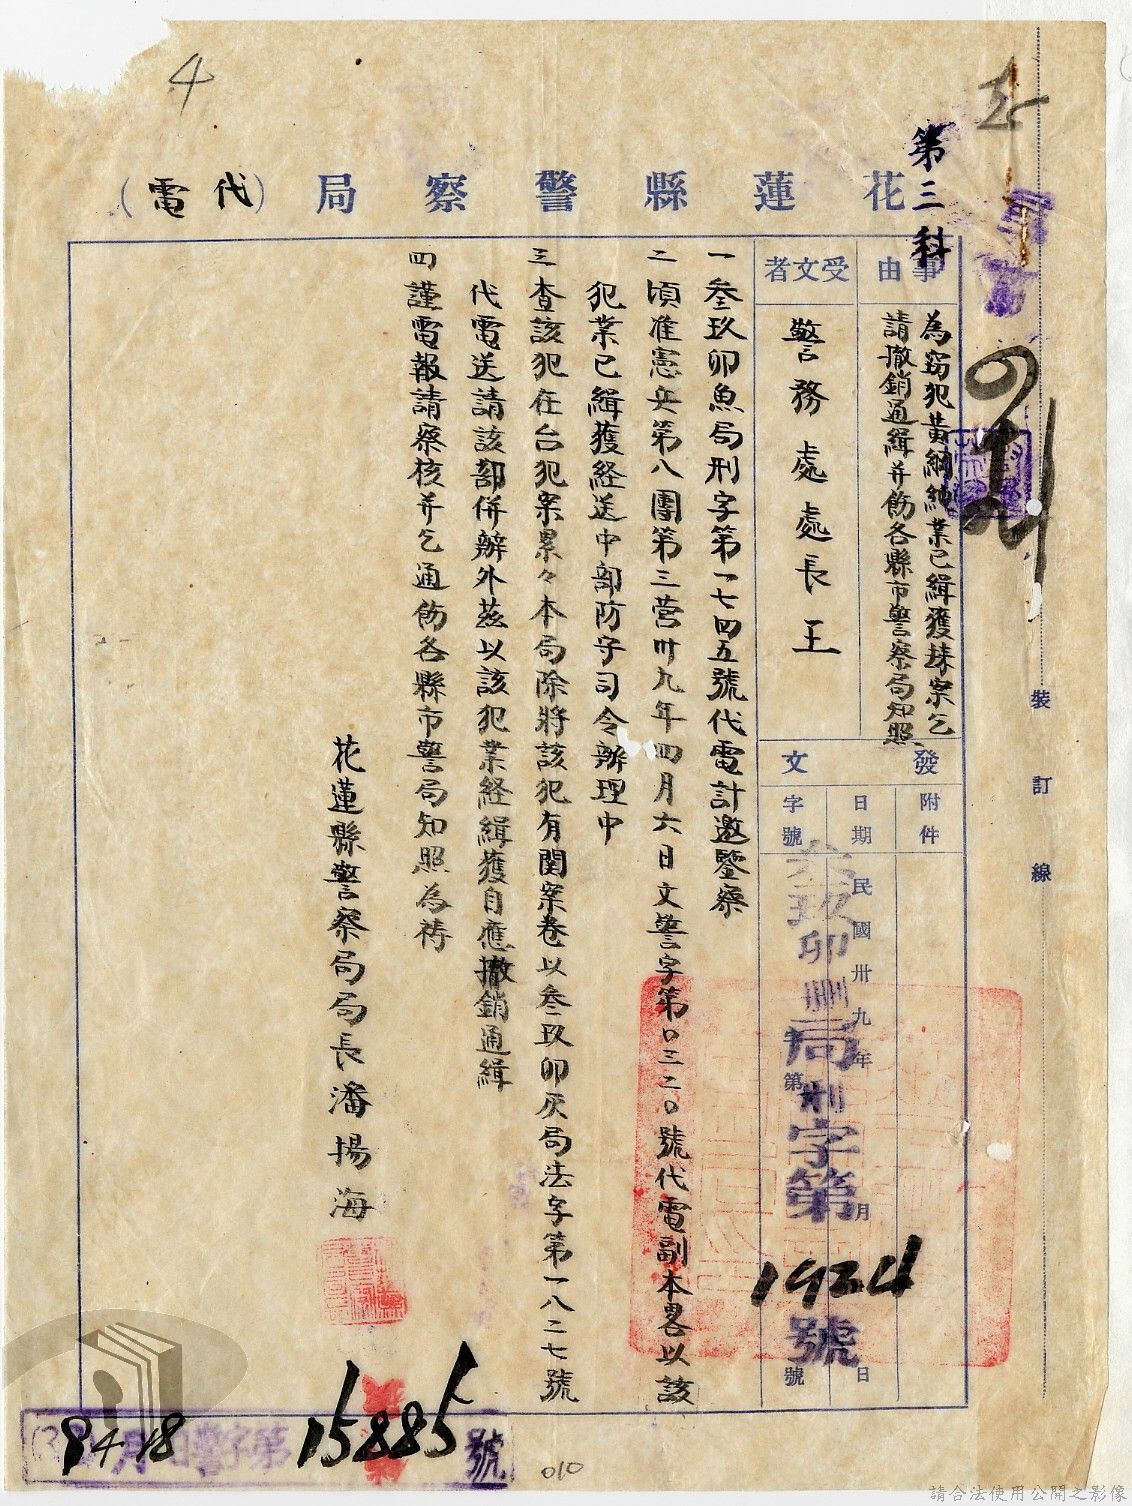 4
第三科
花蓮縣警察局(代電)
事由
為竊犯黃綱純業已緝獲揀案乞
請撤銷通緝并飭各縣市警察局知照
受文者
警務處處長王
發文
附件
日期
字號
民國卅九年 月 日
叁玖卯刪局刑字第1924號
字第 號
一叁玖卯魚局刑字第一七四五號代電計邀鑒察
二頃准憲兵第八團第三營卅九年四月六日文警字第0三二0號代電副本畧以該
犯業已緝獲経送中部防守司令辦理中
三查該犯在台犯案累々本局除將該犯有関案卷以叁玖卯灰局法字第一八二七號
代電送請該部併辦外茲以該犯業経緝獲自應撤銷通緝
四謹電報請察核并乞通飭各縣市警局知照為禱
花蓮縣警察局局長潘揚海
裝訂線
4 18
月 日警字第15885號
010
請合法使用公開之影像